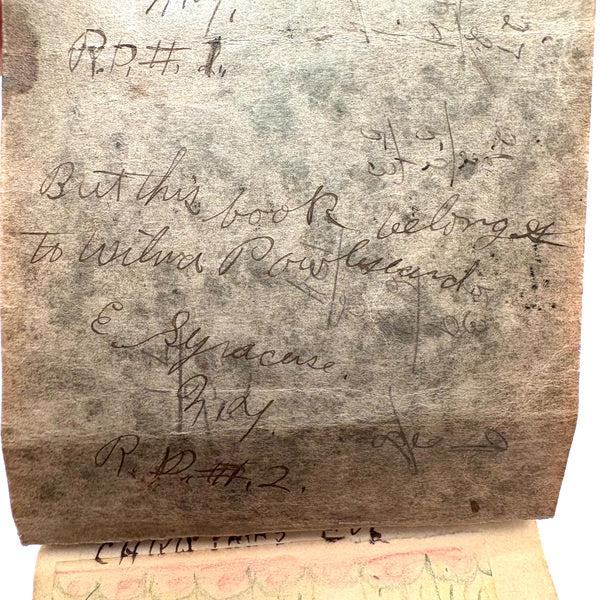 N.Y.
R.D.#.1.
But this book belongs
to Wilma Rowland
E. Syracuse.
N.Y.
R.D.#.2.
CHRISTMAS EVE